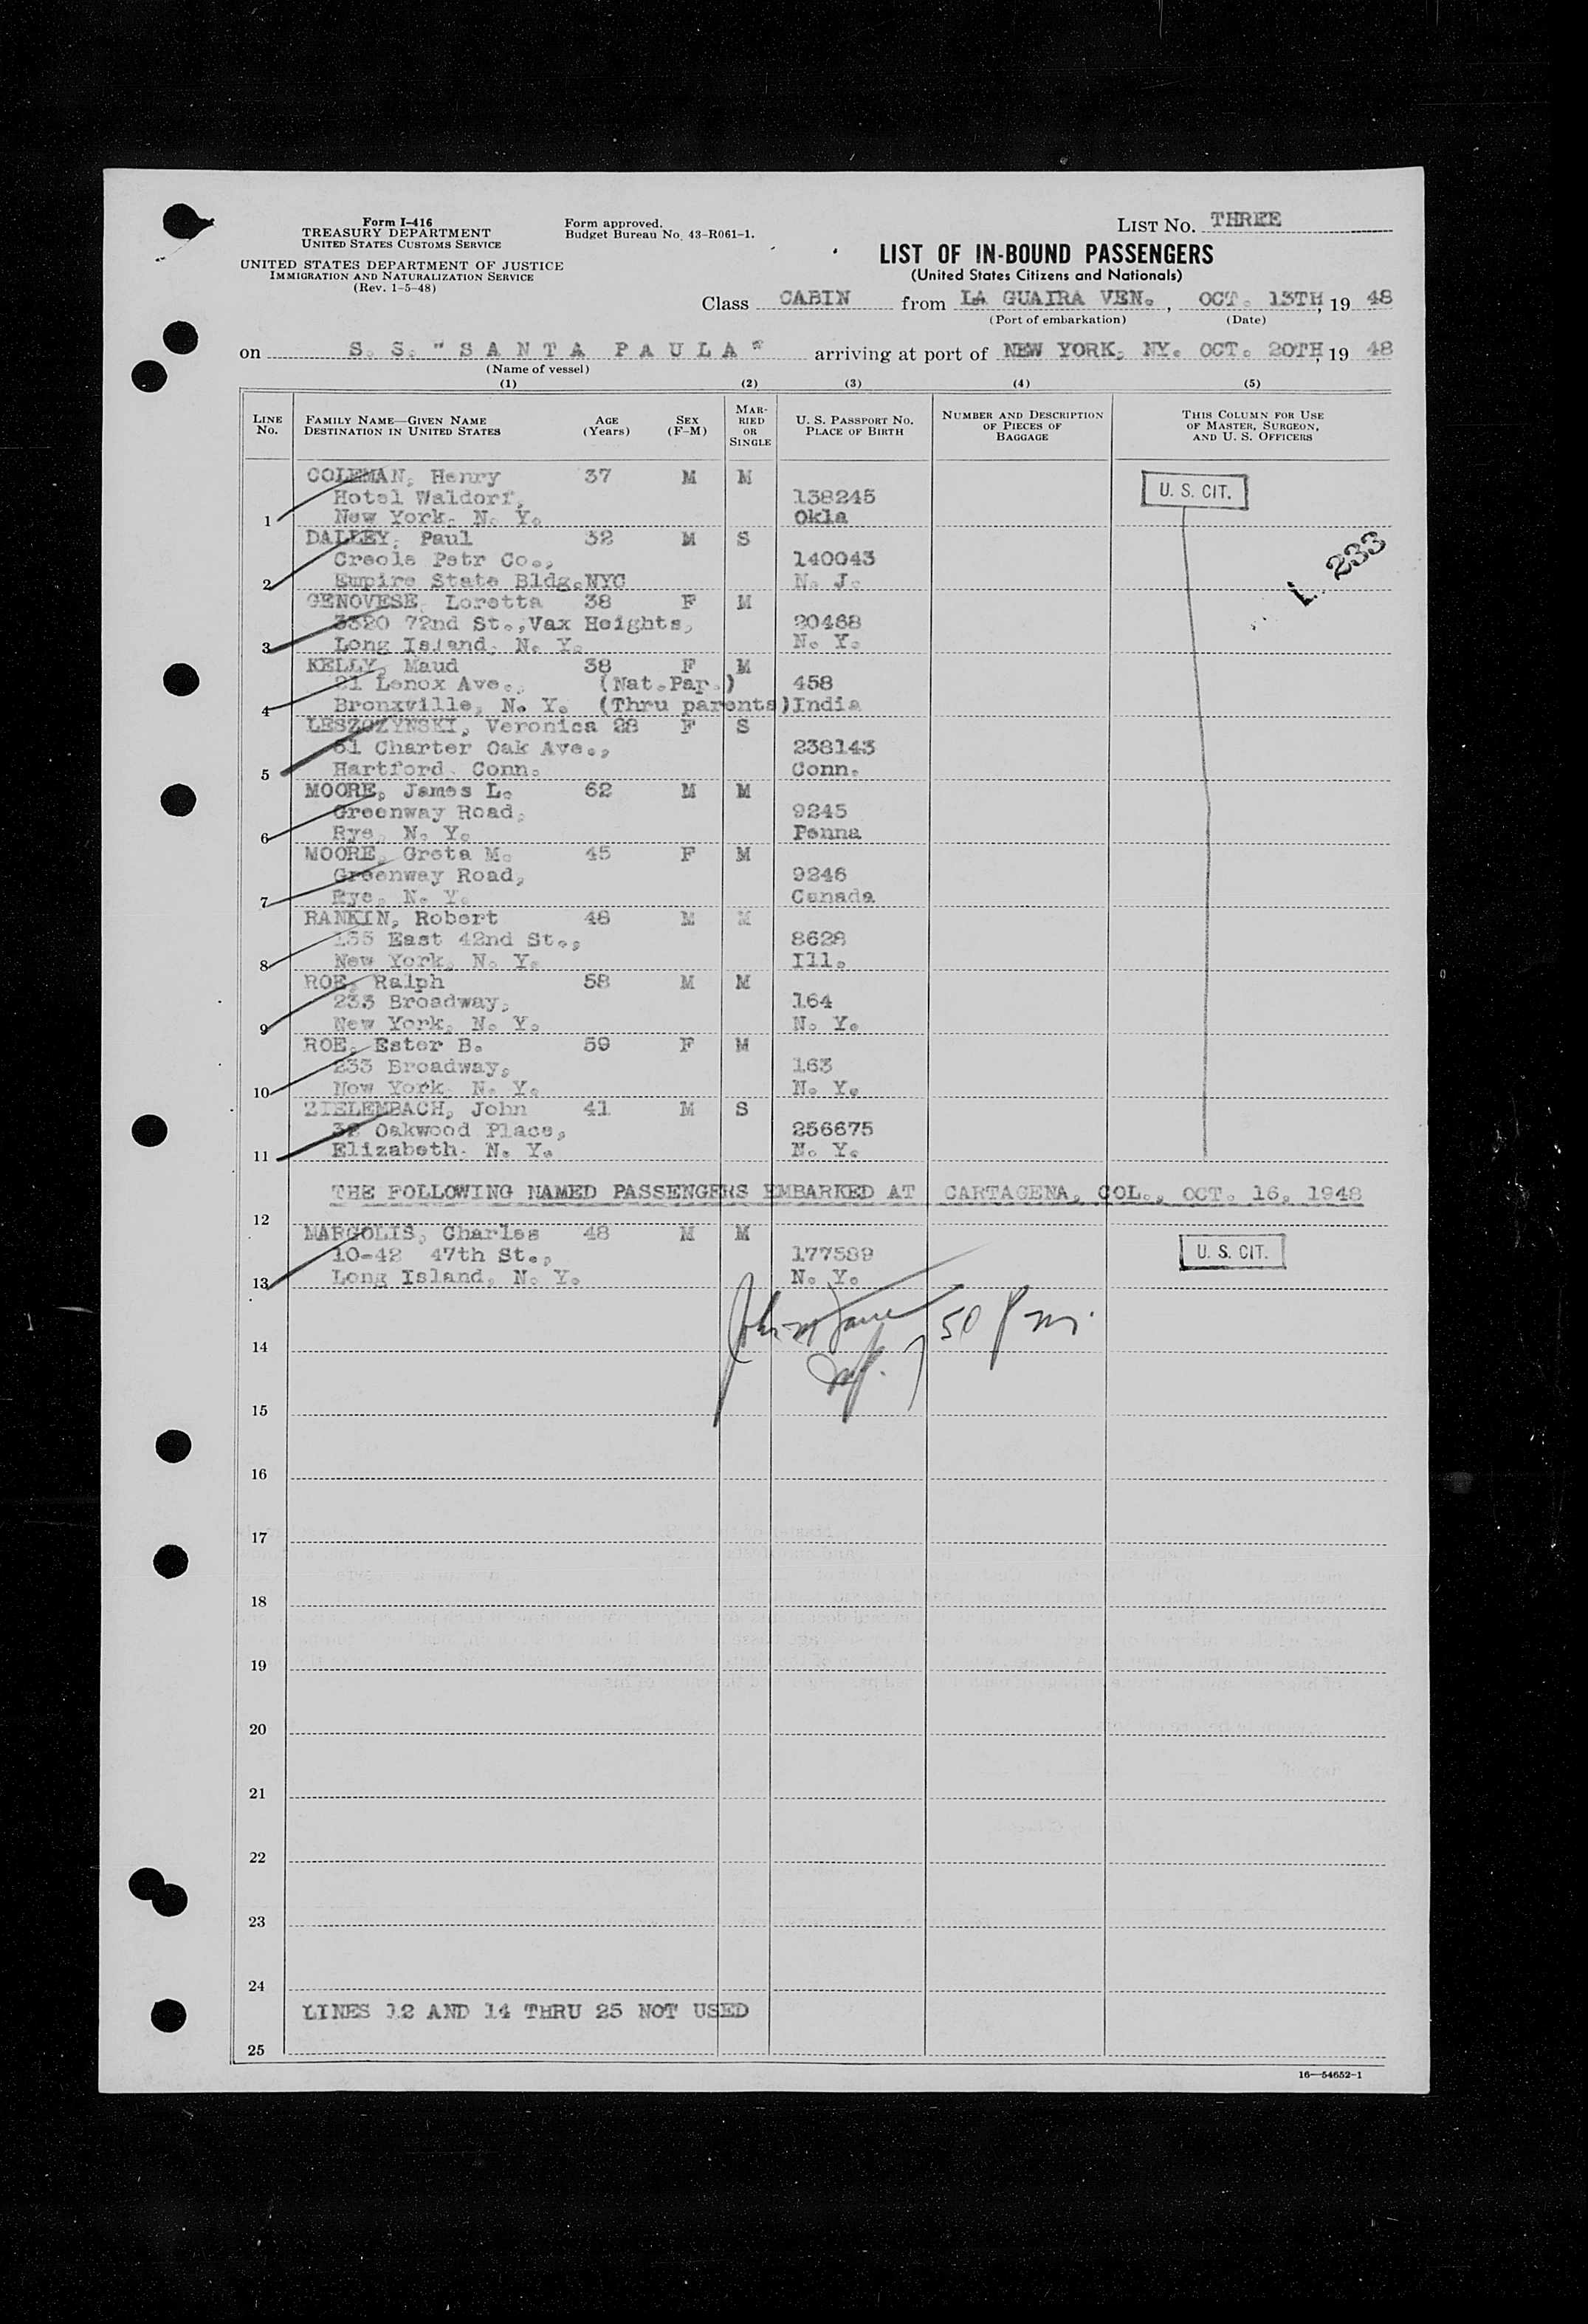 Form I-416
TREASURY DEPARTMENT
UNITED STATES CUSTOMS SERVICE
Form approved.
Budget Bureau No. 43-R061-1.
LIST No. THREE
UNITED STATES DEPARTMENT OF JUSTICE
IMMIGRATION AND NATURALIZATION SERVICE
(Rev. 1-5-48)
LIST OF IN-BOUND PASSENGERS
(United States Citizens and Nationals)
Class CABIN from LA GUAIRA VEN., OCT. 13TH, 19 48
(Port of embarkation) (Date)
on S. S. "SANTA PAULA" arriving at port of NEW YORK, NY. OCT. 20TH, 19 48
(Name of vessel)
(1) (2) (3) (4) (5)
LINE No. FAMILY NAME—GIVEN NAME DESTINATION IN UNITED STATES AGE (Years) SEX (F-M) MARRIED OR SINGLE U. S. PASSPORT No. PLACE OF BIRTH NUMBER AND DESCRIPTION OF PIECES OF BAGGAGE THIS COLUMN FOR USE OF MASTER, SURGEON, AND U. S. OFFICERS
COLEMAN, Henry 37 M M
Hotel Waldorf, 138245 U. S. CIT.
1 New York, N. Y. Okla
DALLEY, Paul 32 M S
Creole Petr Co., 140043 L 233
2 Empire State Bldg.NYC N. J.
GENOVESE, Loretta 38 F M
3320 72nd St.,Vax Heights, 20468
3 Long Island, N. Y. N. Y.
KELLY, Maud 38 F M
21 Lenox Ave., (Nat.Par.) 458
4 Bronxville, N. Y. (Thru parents) India
LESZOZYNSKI, Veronica 28 F S
61 Charter Oak Ave., 238143
5 Hartford, Conn. Conn.
MOORE, James L. 62 M M
Greenway Road, 9245
6 Rye, N. Y. Penna
MOORE, Greta M. 45 F M
Greenway Road, 9246
7 Rye, N. Y. Canada
RANKIN, Robert 48 M M
135 East 42nd St., 8628
8 New York, N. Y. Ill.
ROE, Ralph 58 M M
233 Broadway, 164
9 New York, N. Y. N. Y.
ROE, Ester B. 59 F M
233 Broadway, 163
10 New York, N. Y. N. Y.
ZIELENBACH, John 41 M S
32 Oakwood Place, 256675
11 Elizabeth. N. Y. N. Y.
THE FOLLOWING NAMED PASSENGERS EMBARKED AT CARTAGENA, COL., OCT. 16, 1948
12
MARGOLIS, Charles 48 M M
10-42 47th St., 177589 U. S. CIT.
13 Long Island, N. Y. N. Y.
50 Pm.
14
15
16
17
18
19
20
21
22
23
24
LINES 12 AND 14 THRU 25 NOT USED
25
16—54652-1